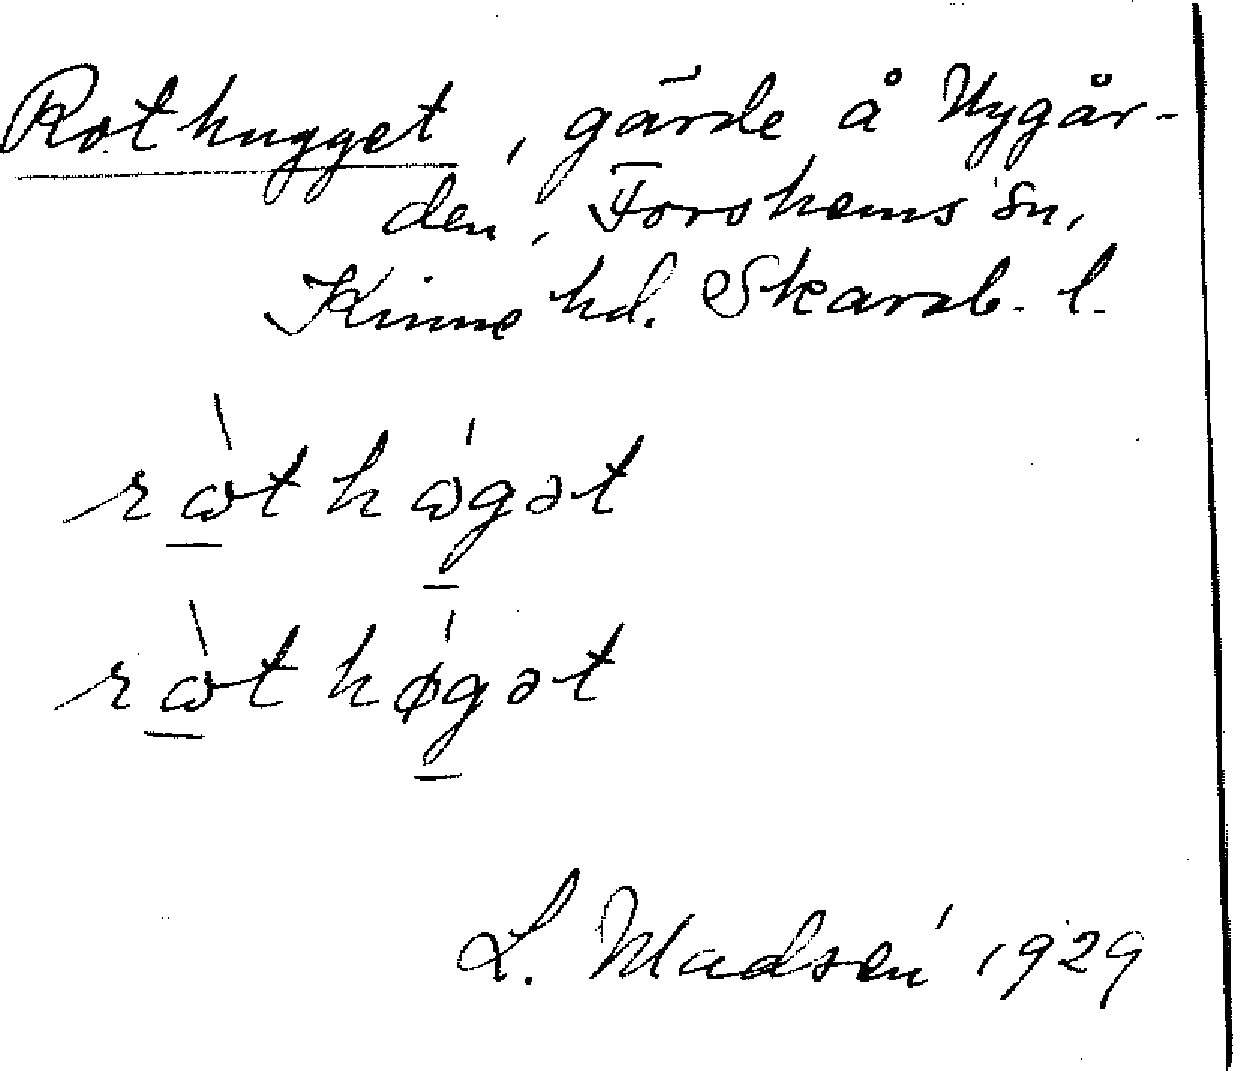 Rothugget, gärde å Nygår-
den, Forshems sn,
Kinne hd. Skarab. l.
ròt hógət
ròt hǿgət
L. Madsén 1929